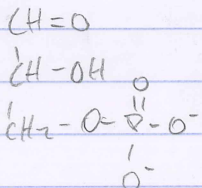 CH=O
CH-OH
O
CH2-O-P-O-
O-